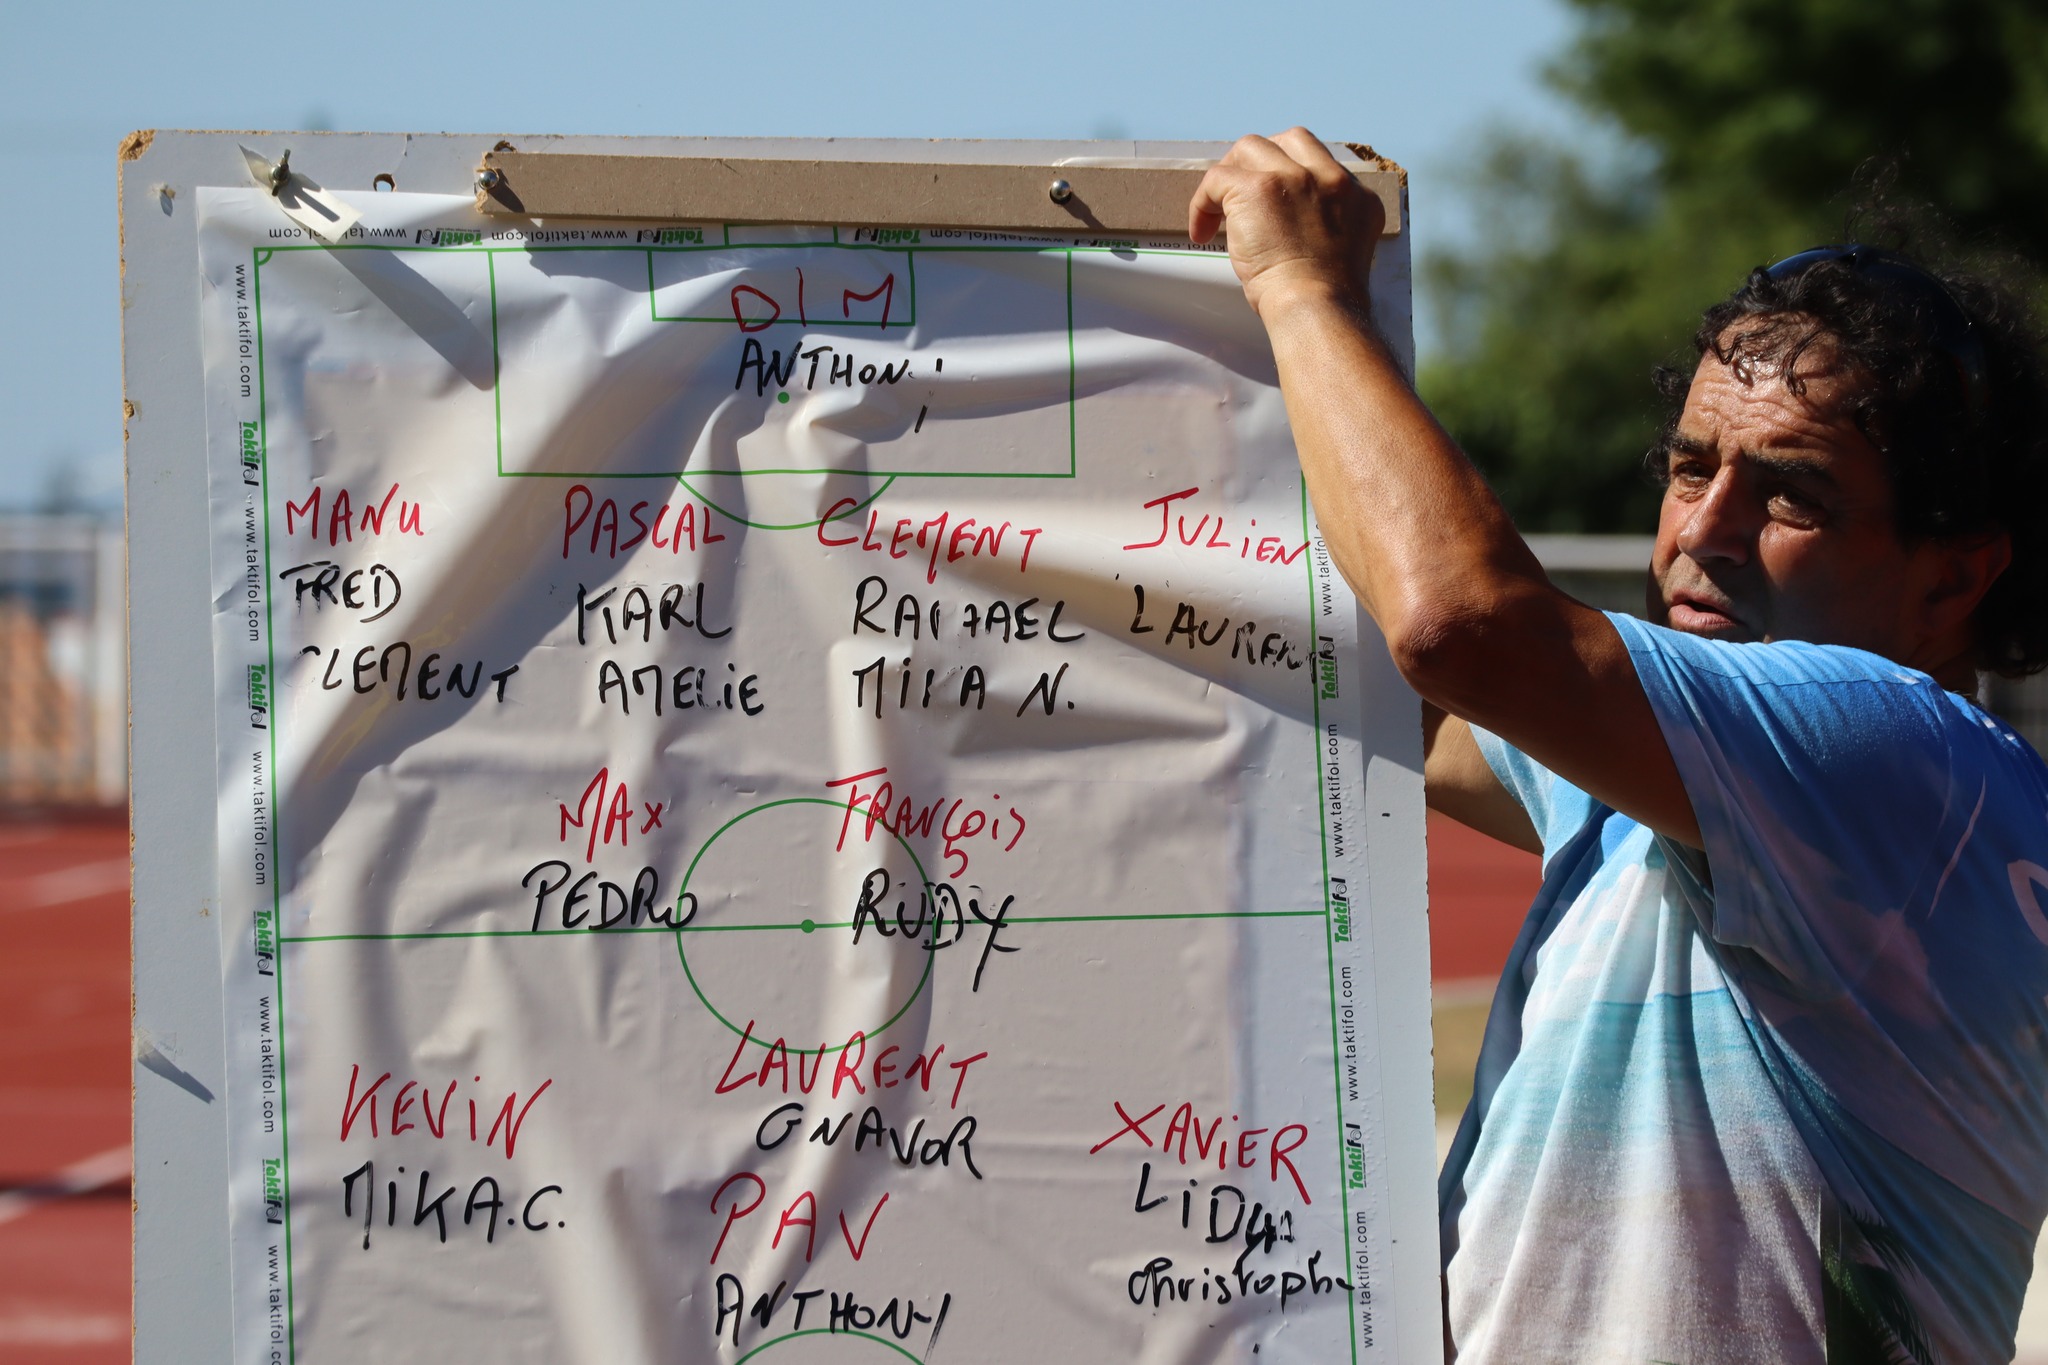 www.taktifol.com Taktifol www.taktifol.com Taktifol www.taktifol.com Taktifol
DIM
MANU PASCAL CLEMENT JULIEN
FRED KARL
CLEMENT AMELIE MIKA N.
MAX FRANÇOIS
PEDRO RUDY
LAURENT
KEViN GNAVOR XAViER
MiKA.C. PAV
ANTHONY
www.taktifol.com
Taktifol
www.taktifol.com
Taktifol
www.taktifol.com
Taktifol
www.taktifol.com
Taktifol
www.taktifol.com
Taktifol
www.taktifol.com
Taktifol
www.taktifol.com
Taktifol
www.taktifol.com
Taktifol
www.taktifol.com